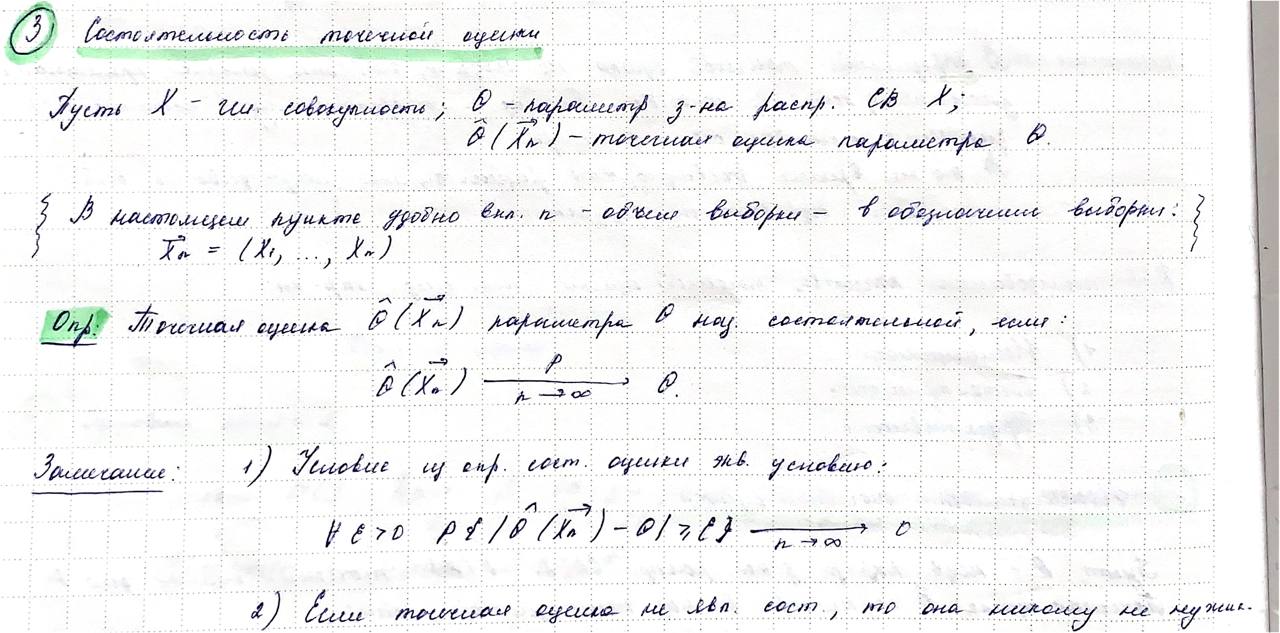 3 Состоятельность точечной оценки
Пусть X – ген. совокупность; θ – параметр з-на распр. СВ X;
θ̂(X⃗n) – точечная оценка параметра θ.
{ В настоящем пункте удобно вкл. n – объем выборки – в обозначение выборки: }
X⃗n = (X₁, ..., Xn)
Опр: Точечная оценка θ̂(X⃗n) параметра θ наз. состоятельной, если:
θ̂(X⃗n) P⟶ n→∞ θ.
Замечание: 1) Условие из опр. сост. оценки экв. условию:
∀ε>0 P{|θ̂(X⃗n) – θ| ≥ ε} ⟶ n→∞ 0
2) Если точечная оценка не явл. сост., то она никому не нужна.